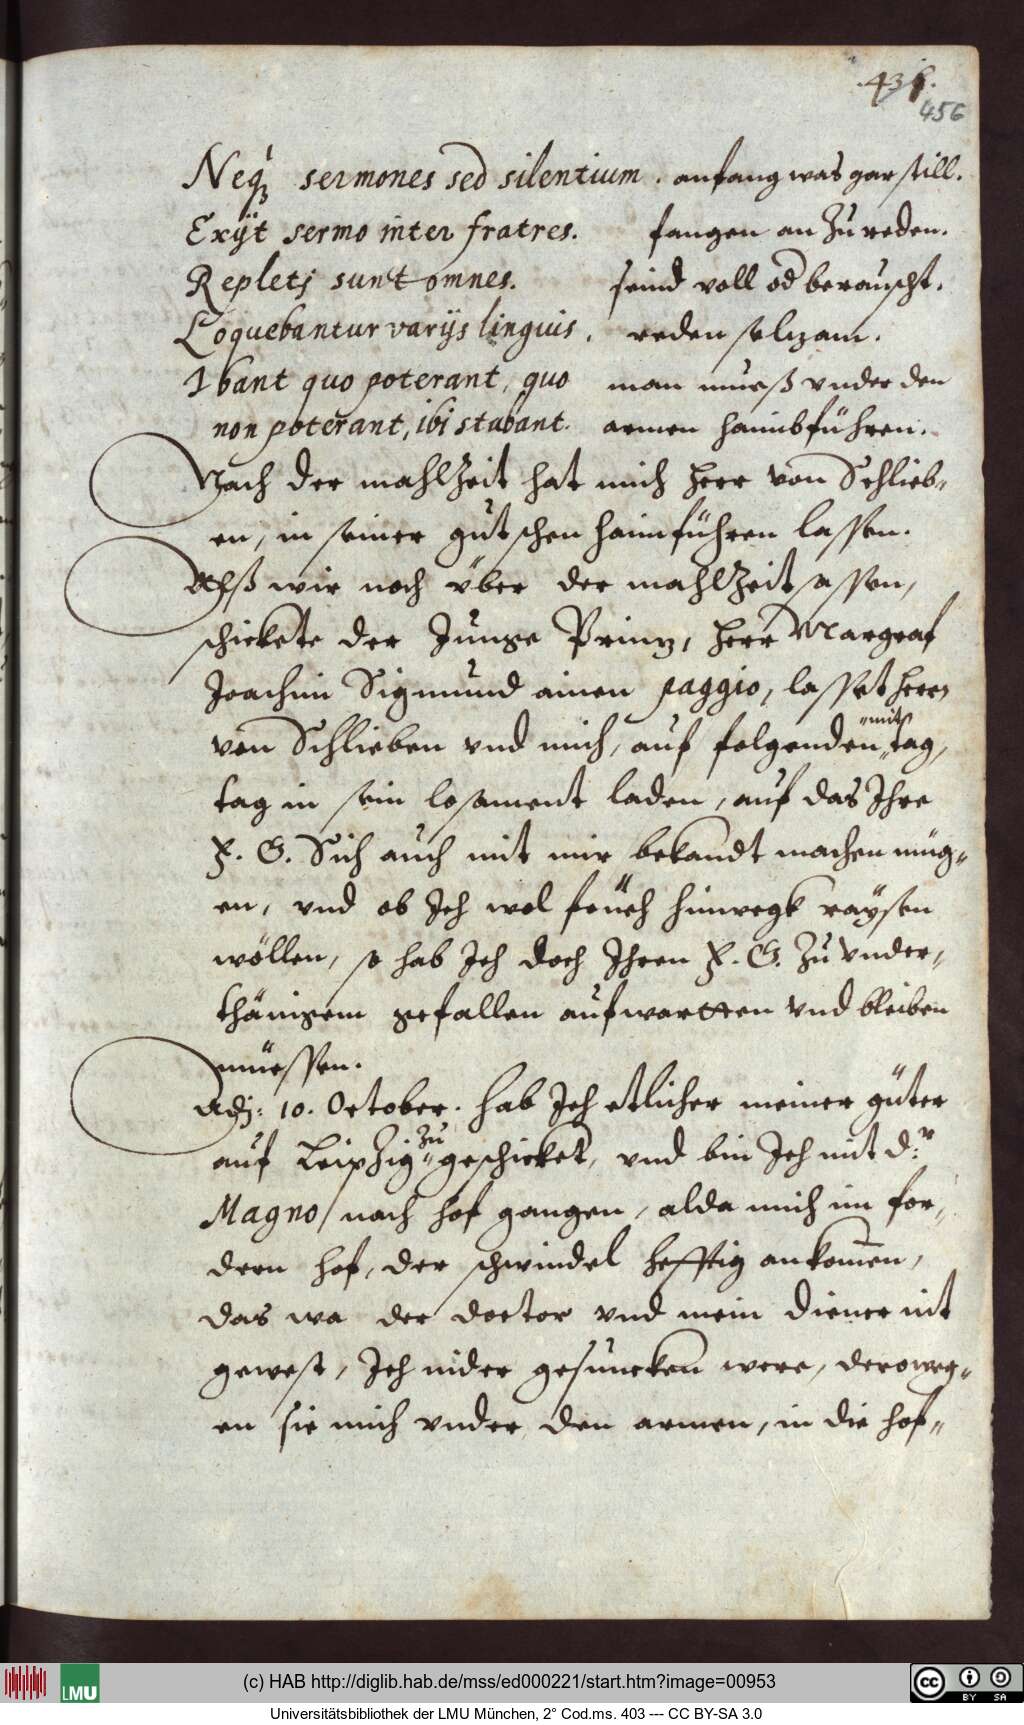 .431.
456
Neq₃ sermones sed silentium . anfang was gar still.
Exijt sermo inter fratres. fangen an Zu reden.
Repletj sunt omnes. seind voll od berauscht.
Loquebantur varijs linguis . reden selzam.
Ibant quo poterant, quo man mueß vnder den
non poterant, ibi stabant. armen haimbführen.
Nach der mahlZeit hat mich herr von Schlieb„
en, in seiner gutschen haimführen lassen.
Alß wir noch über der mahlZeit sassen,
schickete der Junge Prinz, herr Margraf
Joachim Sigmund ainen paggio, lasset herrn
von Schlieben vnd mich, auf folgenden „mit„ tag,
tag in sein losament laden, auf das Ihre
F. G. Sich auch mit mir bekandt machen müg„
en, vnd ob Ich wol hinwegk raÿsen
wöllen, so hab Ich doch Ihren F. G. Zu vnder„
thänigem gefallen aufwartten vnd bleiben
müessen.
Adj: 10. October. hab Ich etlicher meiner güter
auf LeipZig „zu„ geschicket, vnd bin Ich mit D:r
Magno/ nach hof gangen, alda mich im for„
dern hof, der schwindel hefftig ankom̄en,
das wa der doctor vnd mein diener nit
gewest, Ich nider gesuncken were, deroweg„
en sie mich vnder den armen, in die hof„
(c) HAB http://diglib.hab.de/mss/ed000221/start.htm?image=00953
LMU
cc BY SA
Universitätsbibliothek der LMU München, 2° Cod.ms. 403 --- CC BY-SA 3.0